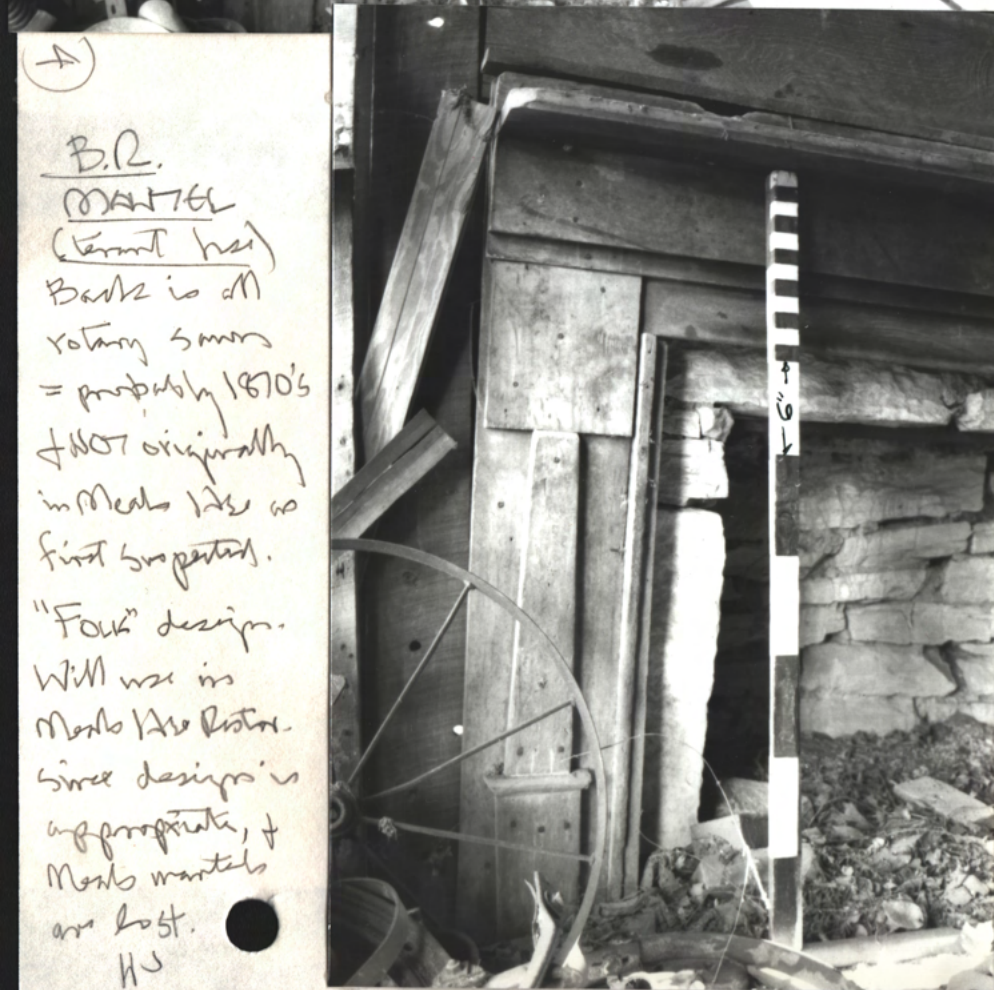 A
B.R.
MANTEL
(tenant hse)
Back is all
rotary sawn
= probably 1870's
+ NOT originally
in Meals Hse as
first suspected.
"FOLK" design.
Will use in
Meals Hse Restor.
since design is
appropriate, +
Meals mantels
are lost.
HJ
6"